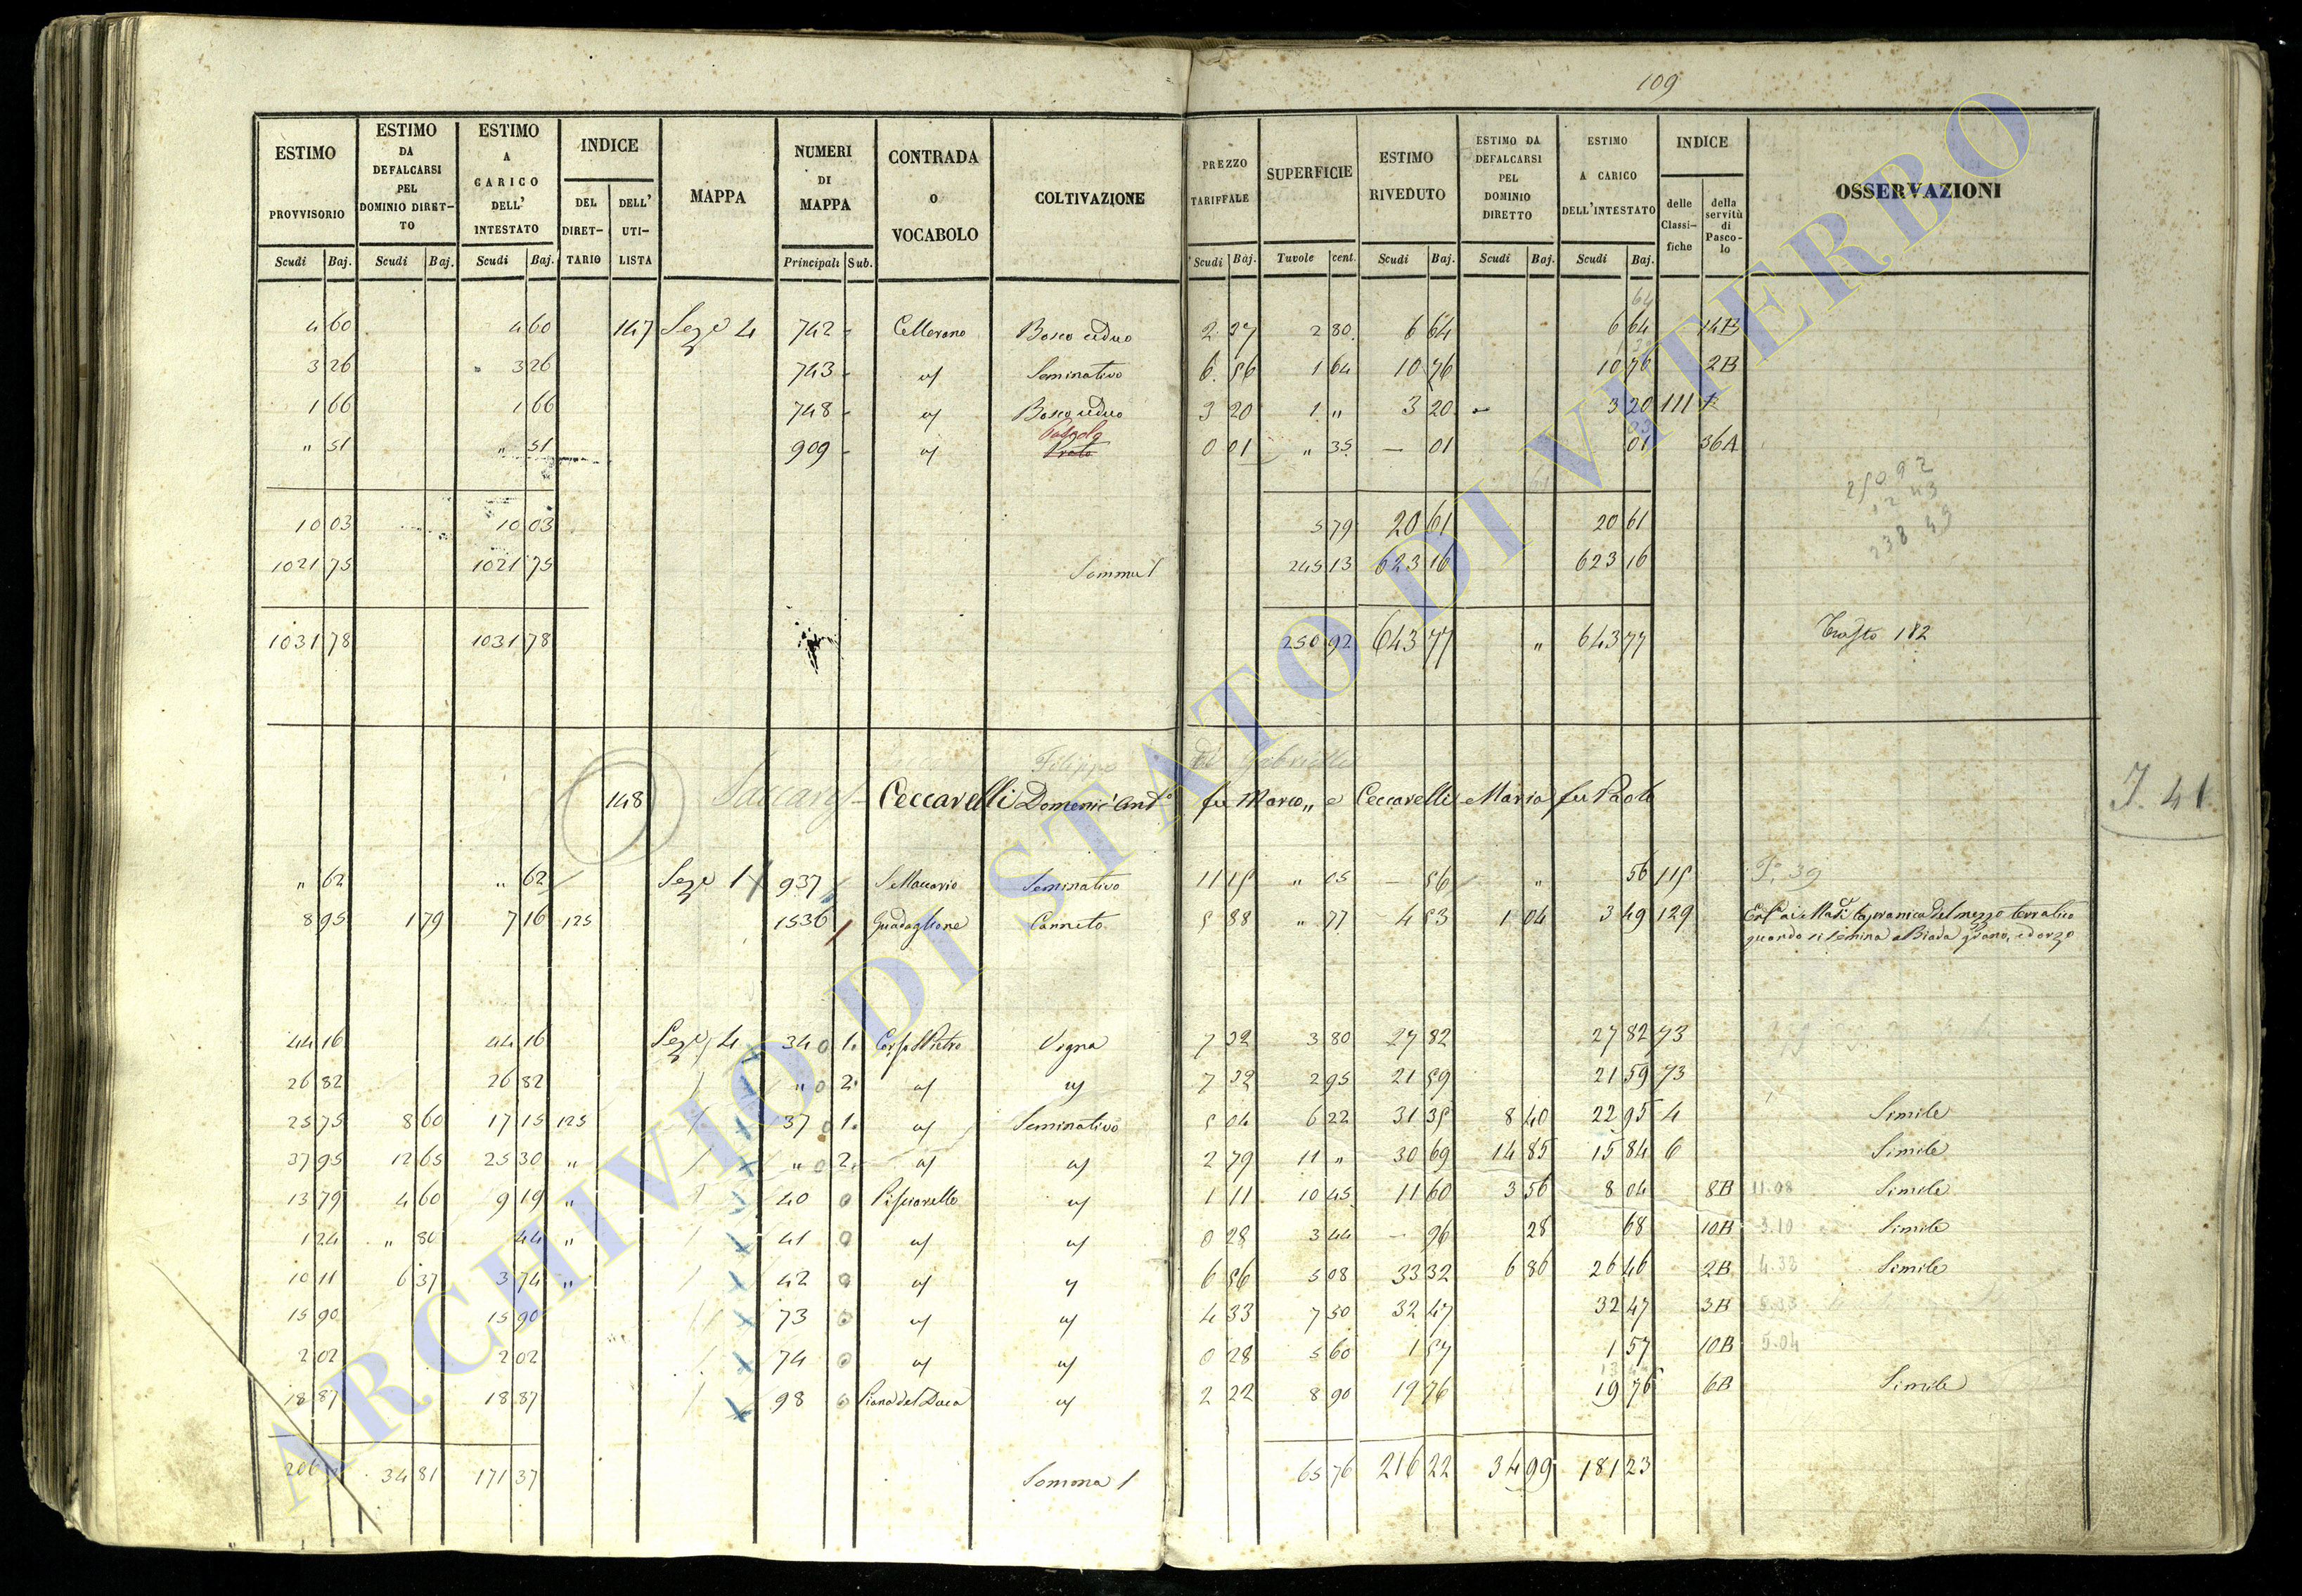 109
ESTIMO PROVVISORIO | ESTIMO DA DEFALCARSI PEL DOMINIO DIRETTO | ESTIMO A CARICO DELL' INTESTATO | INDICE | MAPPA | NUMERI DI MAPPA | CONTRADA O VOCABOLO | COLTIVAZIONE | PREZZO TARIFFALE | SUPERFICIE | ESTIMO RIVEDUTO | ESTIMO DA DEFALCARSI PEL DOMINIO DIRETTO | ESTIMO A CARICO DELL'INTESTATO | INDICE | OSSERVAZIONI
DEL DIRETTARIO | DELL' UTILISTA | delle Classifiche | della servitù di Pascolo
Scudi | Baj. | Scudi | Baj. | Scudi | Baj. | Principali | Sub. | Scudi | Baj. | Tavole | cent. | Scudi | Baj. | Scudi | Baj. | Scudi | Baj.
4 60 | 4 60 | 147 | Sez.e 4 | 742 | Bosco ceduo | 2 37 | 2 80 | 6 64 | 6 64 | 14B
3 26 | 3 26 | 743 | Seminativo | 6 56 | 1 64 | 10 76 | 10 76 | 2B
1 66 | 1 66 | 748 | Bosco ceduo | 3 20 | 1 " | 3 20 | 3 20 | 111
" 51 | " 51 | 909 | Pascolo | 0 01 | " 35 | — 01 | 01 | 36A
250 92
12 43
238 49
10 03 | 10 03 | 5 79 | 20 61 | 20 61
1021 75 | 1021 75 | Somma | 245 13 | 623 16 | 623 16
1031 78 | 1031 78 | 250 92 | 643 77 | " | 643 77 | 182
Filippo
148 | Ceccarelli Domenic'Ant.o fu Marco,, e Ceccarelli Maria fu Paolo
" 62 | " 62 | Sez.e 1 | 937 | S. Maccario | Seminativo | 11 15 | " 05 | — 56 | " | 56 | 115
8 95 | 1 79 | 7 16 | 125 | 1536 | Guadaglione | Canneto | 5 88 | " 77 | 4 53 | 1 04 | 3 49 | 129 | del mezzo terratico
quando si semina a Biada grano, ed orzo
44 16 | 44 16 | Sez.e 4 | 34 | 1. | Vigna | 7 32 | 3 80 | 27 82 | 27 82 | 73
26 82 | 26 82 | " | 2. | 7 32 | 2 95 | 21 59 | 21 59 | 73
25 75 | 8 60 | 17 15 | 125 | 37 | 1. | Seminativo | 5 04 | 6 22 | 31 35 | 8 40 | 22 95 | 4 | Simile
37 95 | 12 65 | 25 30 | " | " | 2. | 2 79 | 11 " | 30 69 | 14 85 | 15 84 | 6 | Simile
13 79 | 4 60 | 9 19 | " | 40 | Pisciarello | 1 11 | 10 45 | 11 60 | 3 56 | 8 04 | 8B | 11.08 | Simile
1 24 | " 80 | 44 | " | 41 | 0 28 | 3 44 | — 96 | 28 | 68 | 10B | 3.10 | Simile
10 11 | 6 37 | 3 74 | " | 42 | 6 56 | 5 08 | 33 32 | 6 86 | 26 46 | 2B | 4.32 | Simile
15 90 | 15 90 | 73 | 4 33 | 7 50 | 32 47 | 32 47 | 3B
2 02 | 2 02 | 74 | 0 28 | 5 60 | 1 57 | 1 57 | 10B | 5.04
18 87 | 18 87 | 98 | Piana del Duca | 2 22 | 8 90 | 19 76 | 19 76 | 6B | Simile
34 81 | 171 37 | Somma 1 | 65 76 | 216 22 | 34 99 | 181 23
ARCHIVIO DI STATO DI VITERBO